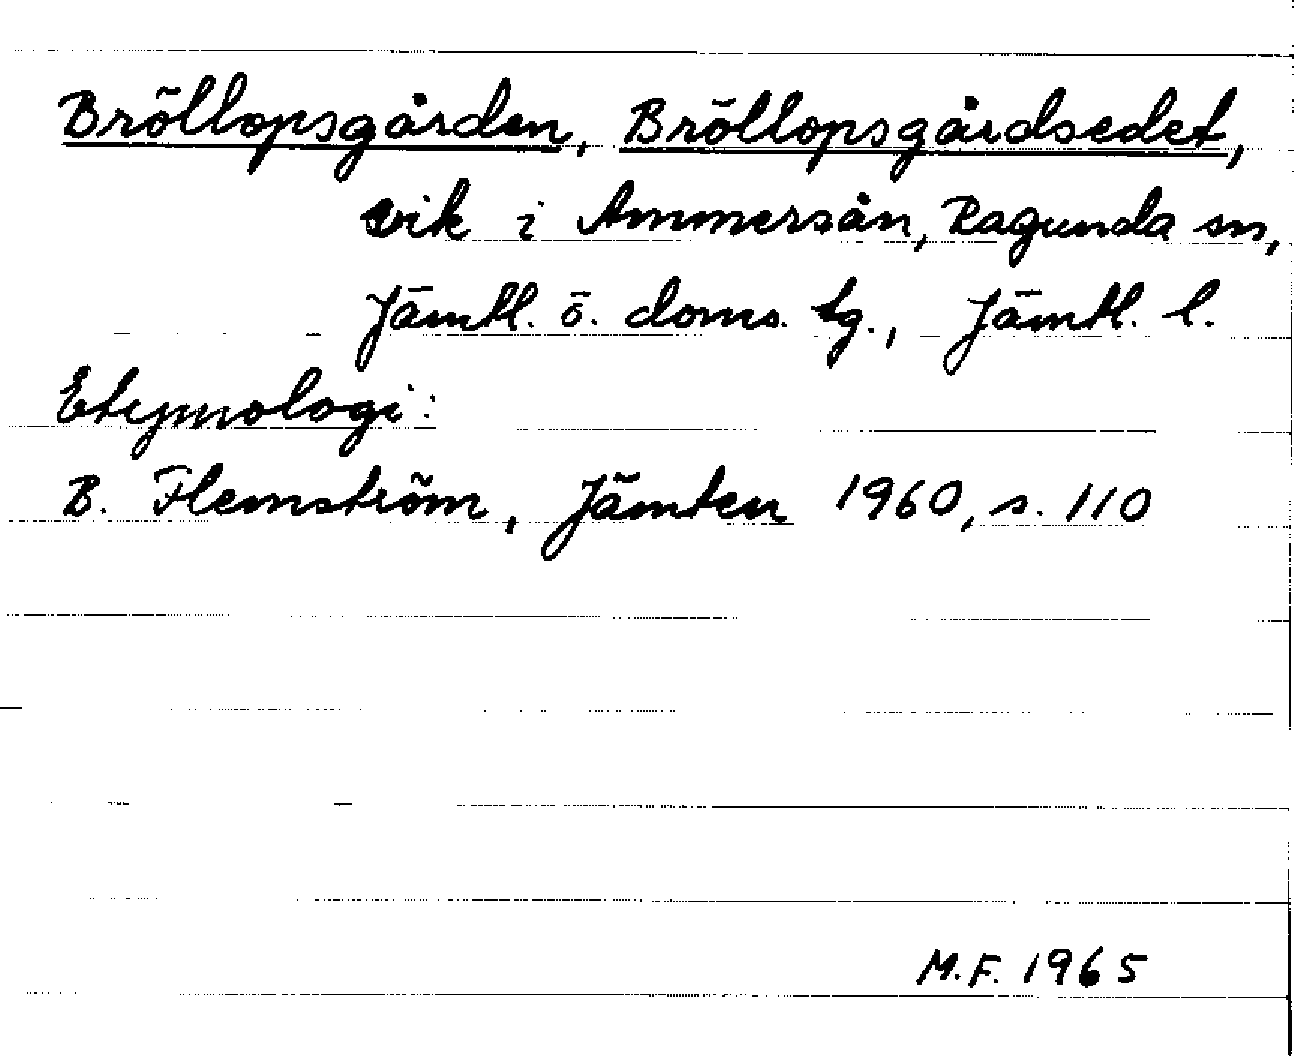 Bröllopsgården, Bröllopsgårdsedet,
vik i Ammersån, Ragunda sn,
Jämtl. ö. doms. tg., Jämtl. l.
Etymologi:
B. Flemström, Jämten 1960, s. 110
M.F. 1965